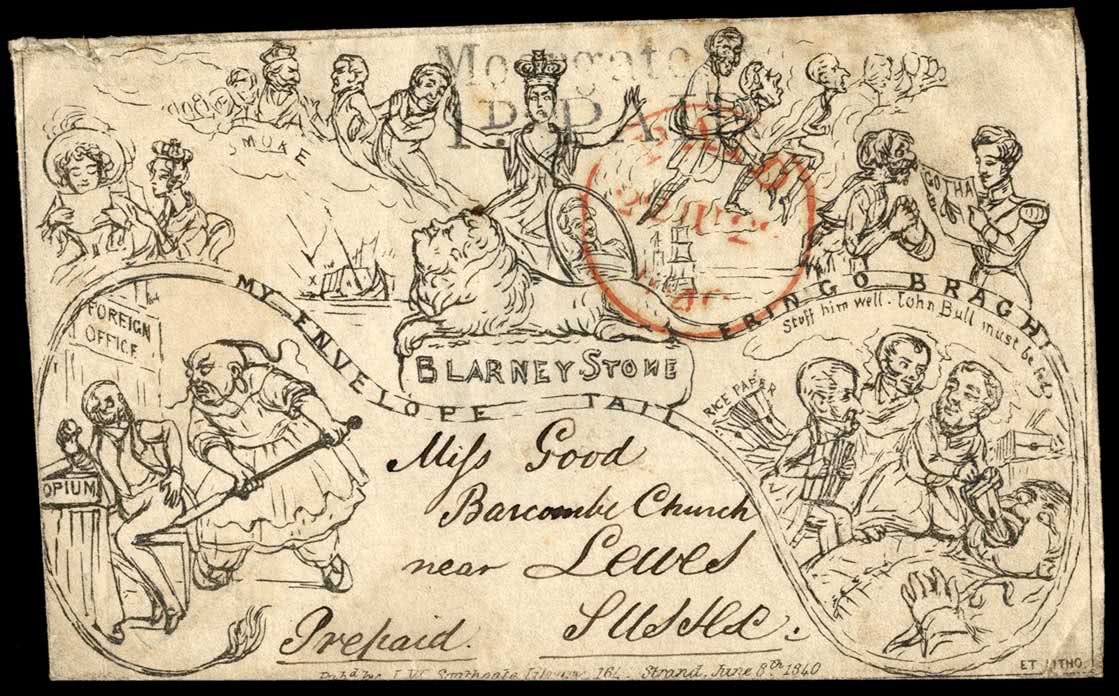 Moorgate
1D. PAID
SMOKE
PAID
GOTHA
MY ENVELOPE TAIL
ERIN GO BRAGH!
Stuff him well. John Bull must be fed,
FOREIGN
OFFICE
BLARNEY STONE
RICE PAPER
OPIUM
Miss Good
Barcombe Church
near Lewes
Sussex.
Prepaid.
Pub'd by J. W. Southgate Library 164. Strand, June 8th. 1840
ET LITHO.